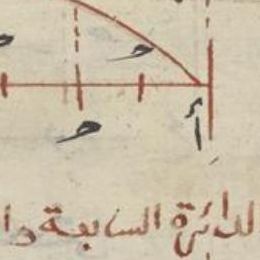 ح
ح
ح
أ
لدائرة السابعة وا